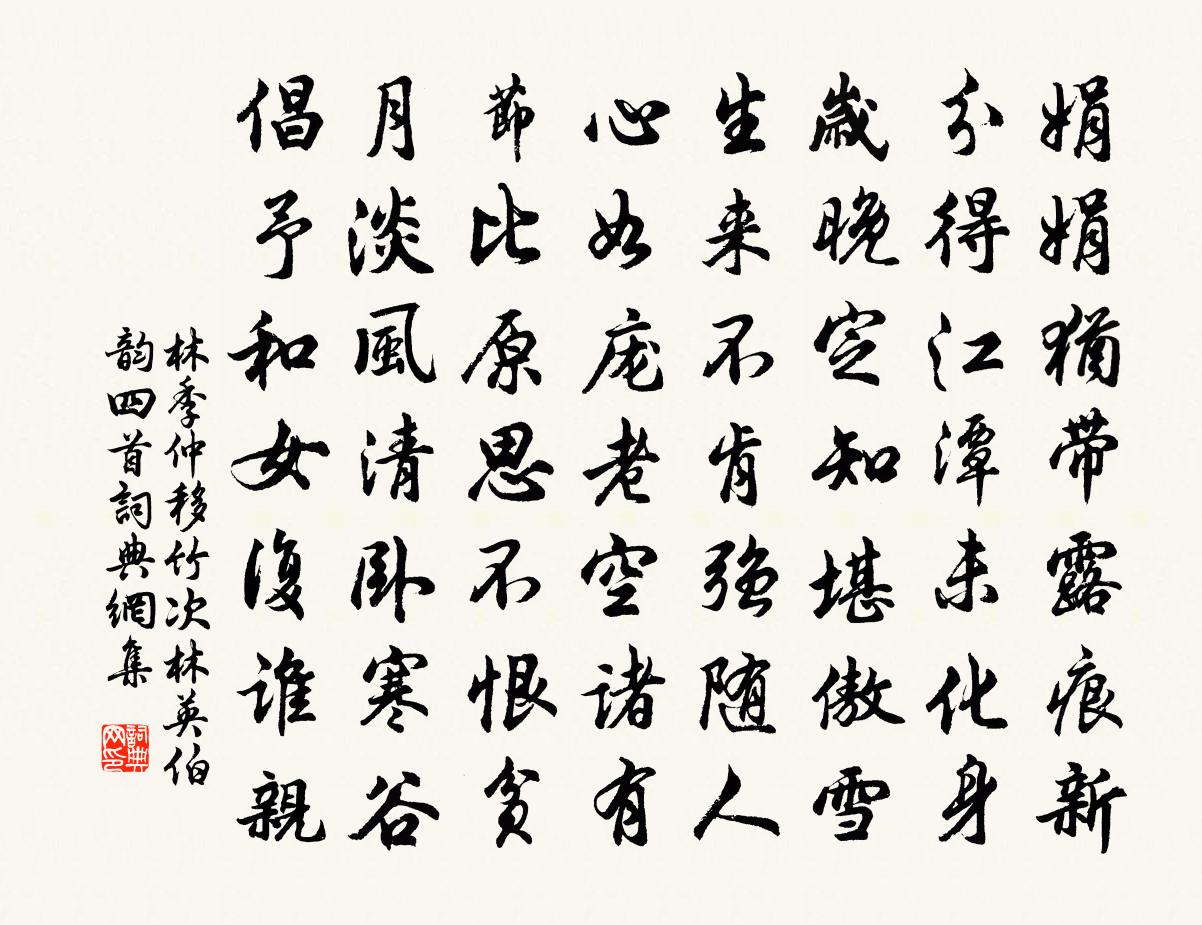 娟娟猶帶露痕新
分得江潭未化身
歲晚定知堪傲雪
生來不肯強隨人
心如庞老空諸有
節比原思不恨貧
月淡風清卧寒谷
倡予和女復誰親
林季仲移竹次林英伯
韵四首詞典網集
詞典网印